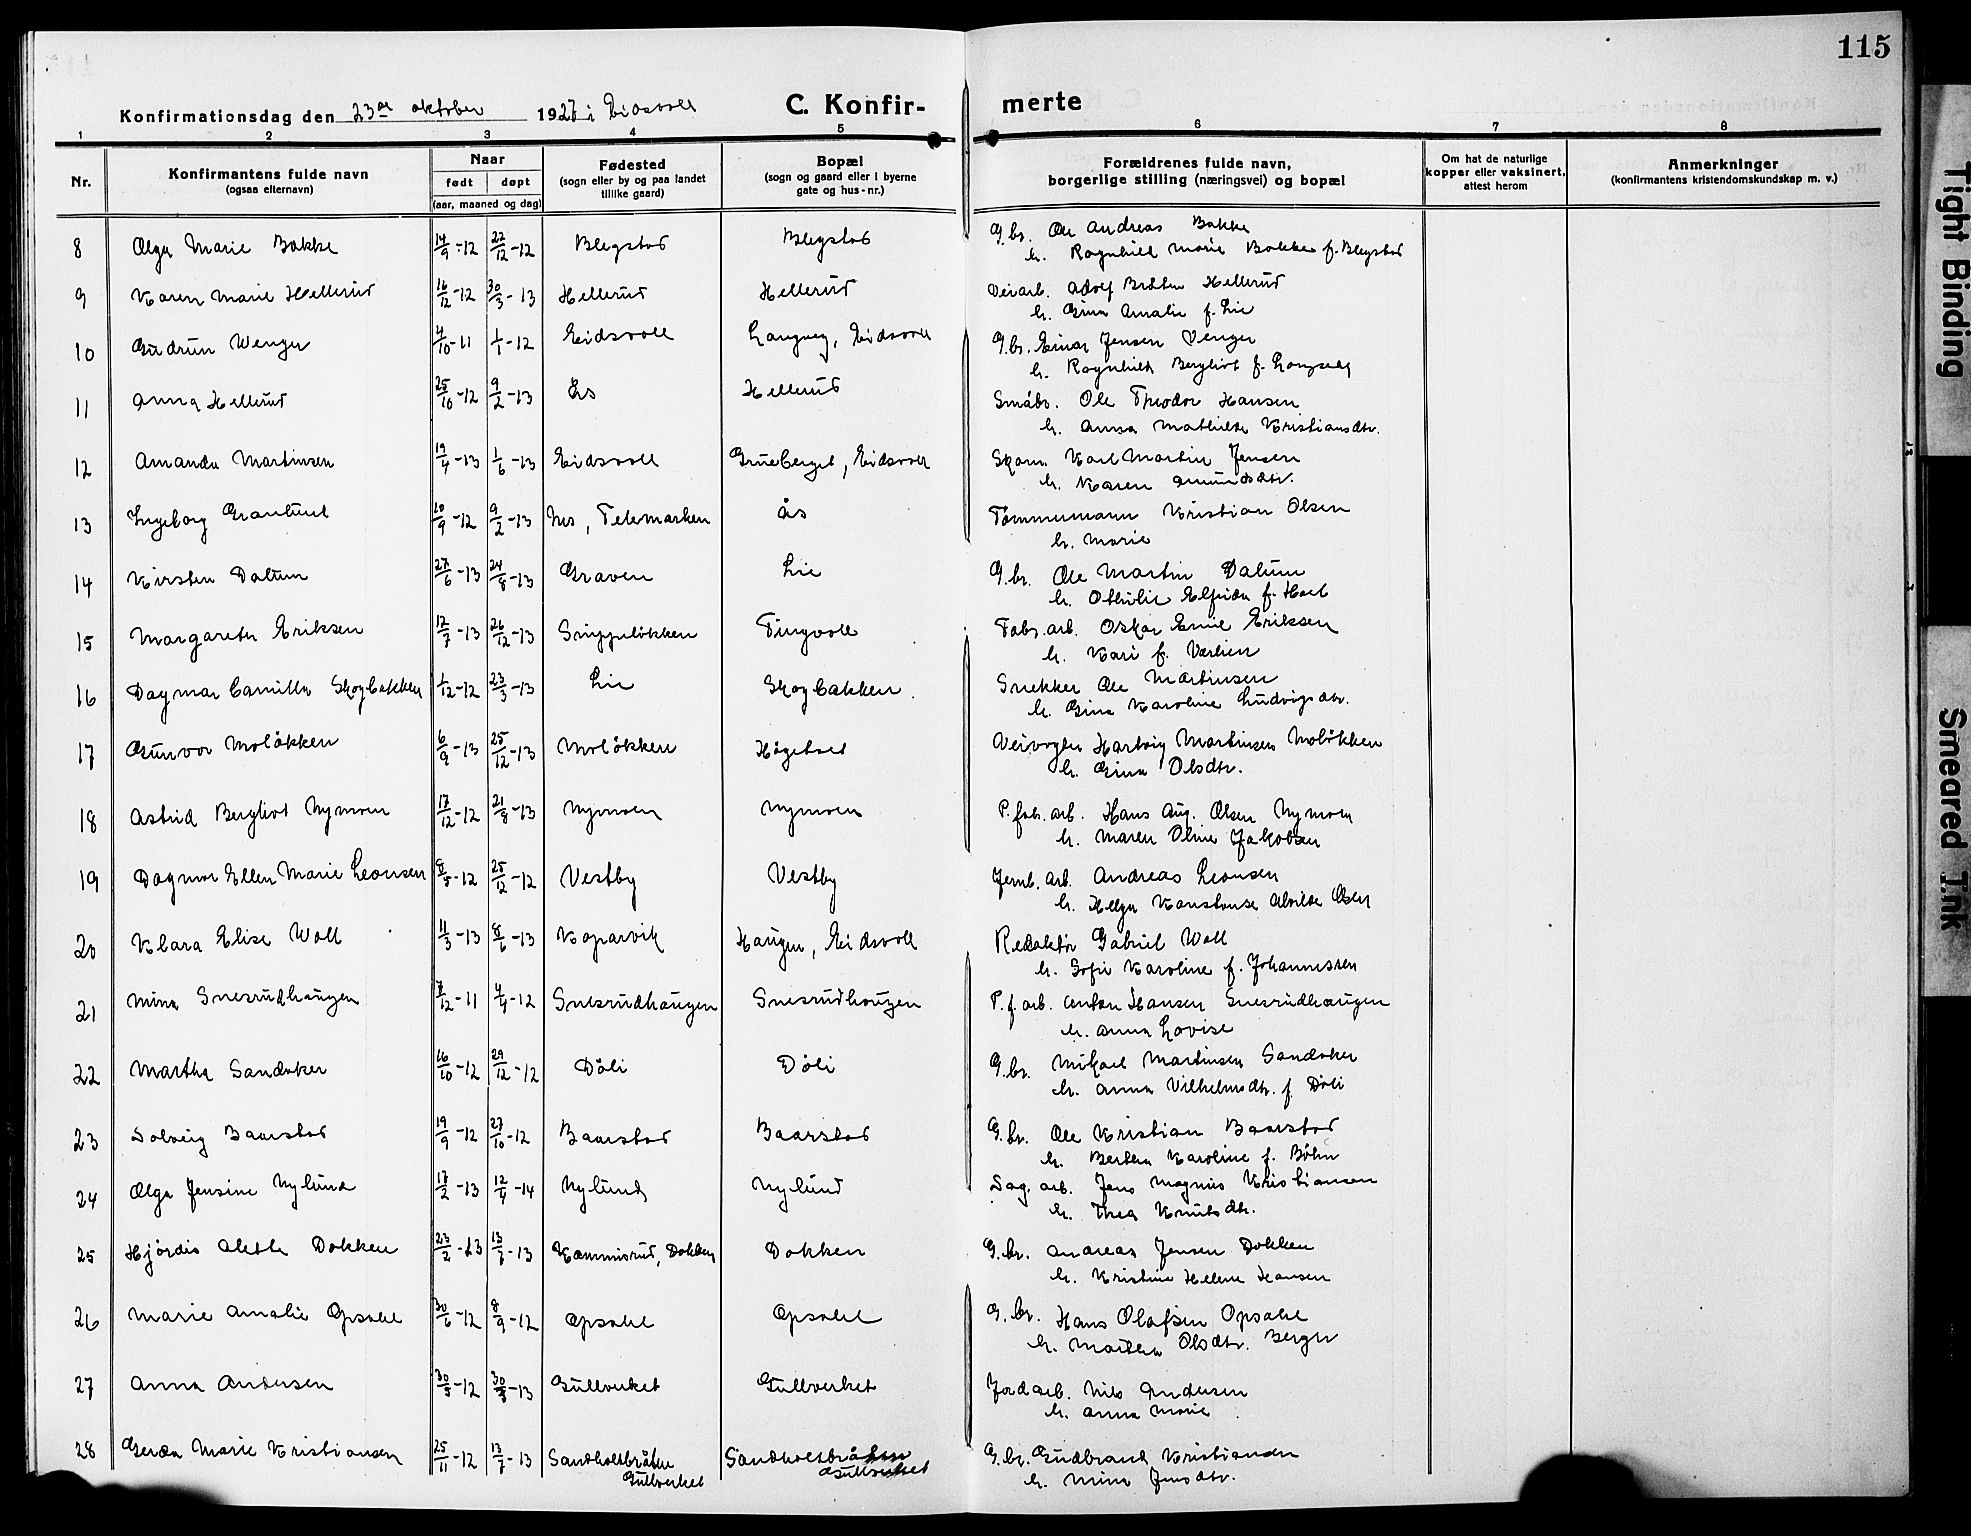 115
Konfirmationsdag den 23de oktober 1927 i Eidsvoll
C. Konfirmerte
1 2 3 4 5 6 7 8
Nr.
Konfirmantens fulde navn
(ogsaa efternavn)
Naar
født døpt
(aar, maaned og dag)
Fødested
(sogn eller by og paa landet
tillike gaard)
Bopæl
(sogn og gaard eller i byerne
gate og hus-nr.)
Forældrenes fulde navn,
borgerlige stilling (næringsvei) og bopæl
Om hat de naturlige
kopper eller vaksinert,
attest herom
Anmerkninger
(konfirmantens kristendomskundskap m. v.)
8 Olga Marie Bakke 14/9-12 22/12-12 Blegstad Blegstad G.br. Ole Andreas Bakke
h. Ragnhild Marie Bakke f. Blegstad
9 Karen Marie Hellerud 16/12-12 30/3-13 Hellerud Hellerud Veiarb. Adolf Bråten Hellerud
h. Gina Amalie f. Lie
10 Gudrun Wenger 4/10-11 1/1-12 Eidsvoll Langveg, Eidsvoll G.br. Einar Jensen Venger
h. Ragnhild Bergliot f.
11 Anna Hellerud 25/10-12 9/2-13 Es Hellerud Småbr. Ole Theodor Hansen
h. Anna Mathilde Kristiansdtr.
12 Amanda Martinsen 19/4-13 1/6-13 Eidsvoll Grueberget, Eidsvoll Skom. Karl Martin Jensen
h. Karen Amundsdtr.
13 Ingeborg Granlund 10/9-12 9/2-13 Nes, Telemarken Ås Tømmermann Kristian Olsen
h. Marie
14 Kirsten Dalum 27/6-13 24/8-13 Graven Lie G.br. Ole Martin Dalum
h. Othilie Elfrida f. Hoel
15 Margarete Eriksen 12/7-13 26/12-13 Snippeløkken Tingvoll Fabr.arb. Oskar Emil Eriksen
h. Kari f. Værlien
16 Dagmar Camilla Skogbakken 1/12-12 23/3-13 Lie Skogbakken. Snekker Ole Martinsen
h. Gina Karoline Ludvigsdtr.
17 Gunvor Moløkken 6/9-13 25/12-13 Moløkken Høgetveit Veivogter Hartvig Martinsen Moløkken
h. Gina Olsdtr.
18 Astrid Bergliot Nymoen 17/12-12 21/8-13 Nymoen Nymoen P.fab.arb. Hans Aug. Olsen Nymoen
h. Maren Oline Jakobsen
19 Dagmar Ellen Marie Leonsen 8/5-12 25/12-12 Vestby Vestby Jernb.arb. Andreas Leonsen
h. Helga Konstanse Alvilde Olsen
20 Klara Elise Woll 11/3-13 8/6-13 Kopervik Haugen, Eidsvoll Redaktør Gabriel Woll
h. Sofie Karoline f. Johannessen
21 Mina Snesrudhaugen 7/12-11 4/4-12 Snesrudhaugen Snesrudhaugen P.f.arb. Anton Hansen Snesrudhaugen
h. Anna Lovise
22 Martha Sandaker 16/10-12 29/12-12 Døli Døli G.br. Mikael Martinsen Sandaker
h. Anna Vilhelmsdtr. f. Døli
23 Solveig Baarstad 19/9-12 27/10-12 Baarstad Baarstad G.br. Ole Kristian Baarstad
h. Berthea Karoline f. Bøhn
24 Olga Jensine Nylund 17/2-13 12/4-14 Nylund Nylund Sag.arb. Jens Magnus Kristiansen
h. Thea Knutsdtr.
25 Hjørdis Alette Dokken 23/2-13 13/7-13 Kammisrud, Dokken Dokken G.br. Andreas Jensen Dokken
h. Kristine Helene Hansen
26 Marie Amalie Opsahl 30/6-12 8/9-12 Opsahl Opsahl G.br. Hans Olafsen Opsahl
h. Marthea Olsdtr. Berger
27 Anna Andersen 30/8-12 30/3-13 Gullverket Gullverket Jordarb. Nils Andersen
h. Anna Marie
28 Gerda Marie Kristiansen 25/11-12 13/7-13 Sandholtbråten Gullverket Sandholtbråten Gullverket G.br. Gudbrand Kristiansen
h. Mina Jensdtr.
Tight Binding
Smeared Ink